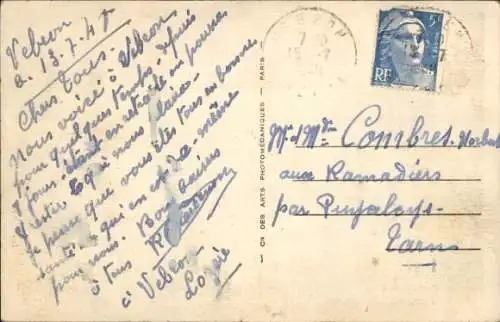 Vebron
a. 13.7.47
Chers Tous.
Nous voici à Vebron
pour quelques temps, depuis
8 jours, étant en retraite on pourra
y rester ce qui nous plaira.
Je pense que vous êtes tous en bonne
santé, qui en est de même
pour nous. Bons baisers
à tous
à Vebron
Lozère
5F
RF
Cie DES ARTS PHOTOMÉCANIQUES - PARIS
Mr et Mme Combres Norbert
aux Ramadiers
par Puycelcy
Tarn